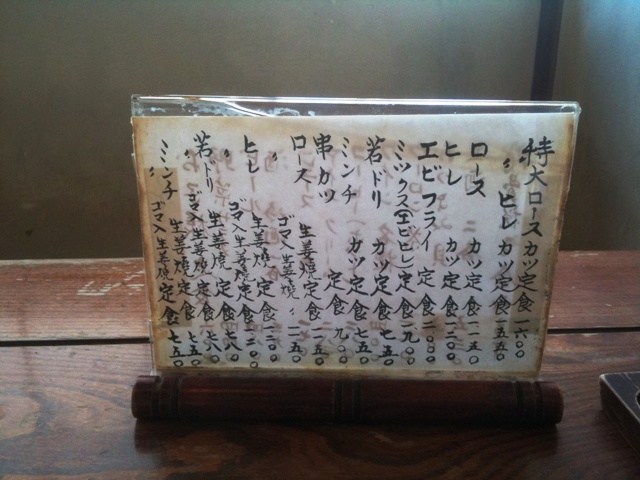 特大ロースカツ定食一六〇〇
〃ヒレカツ定食一五五〇
ロースカツ定食一一五〇
ヒレカツ定食一二〇〇
エビフライ定食二〇〇〇
ミックス(エビヒレ)定食一九〇〇
若ドリカツ定食七五〇
ミンチカツ定食七五〇
串カツ定食九〇〇
ロース生姜焼定食一一五〇
〃ゴマ入生姜焼〃一一五〇
ヒレ生姜焼定食一二〇〇
〃ゴマ入生姜焼定食一二〇〇
若ドリ生姜焼定食七八〇
〃ゴマ入生姜焼定食七八〇
ミンチ生姜焼定食七五〇
〃ゴマ入生姜焼定食七五〇